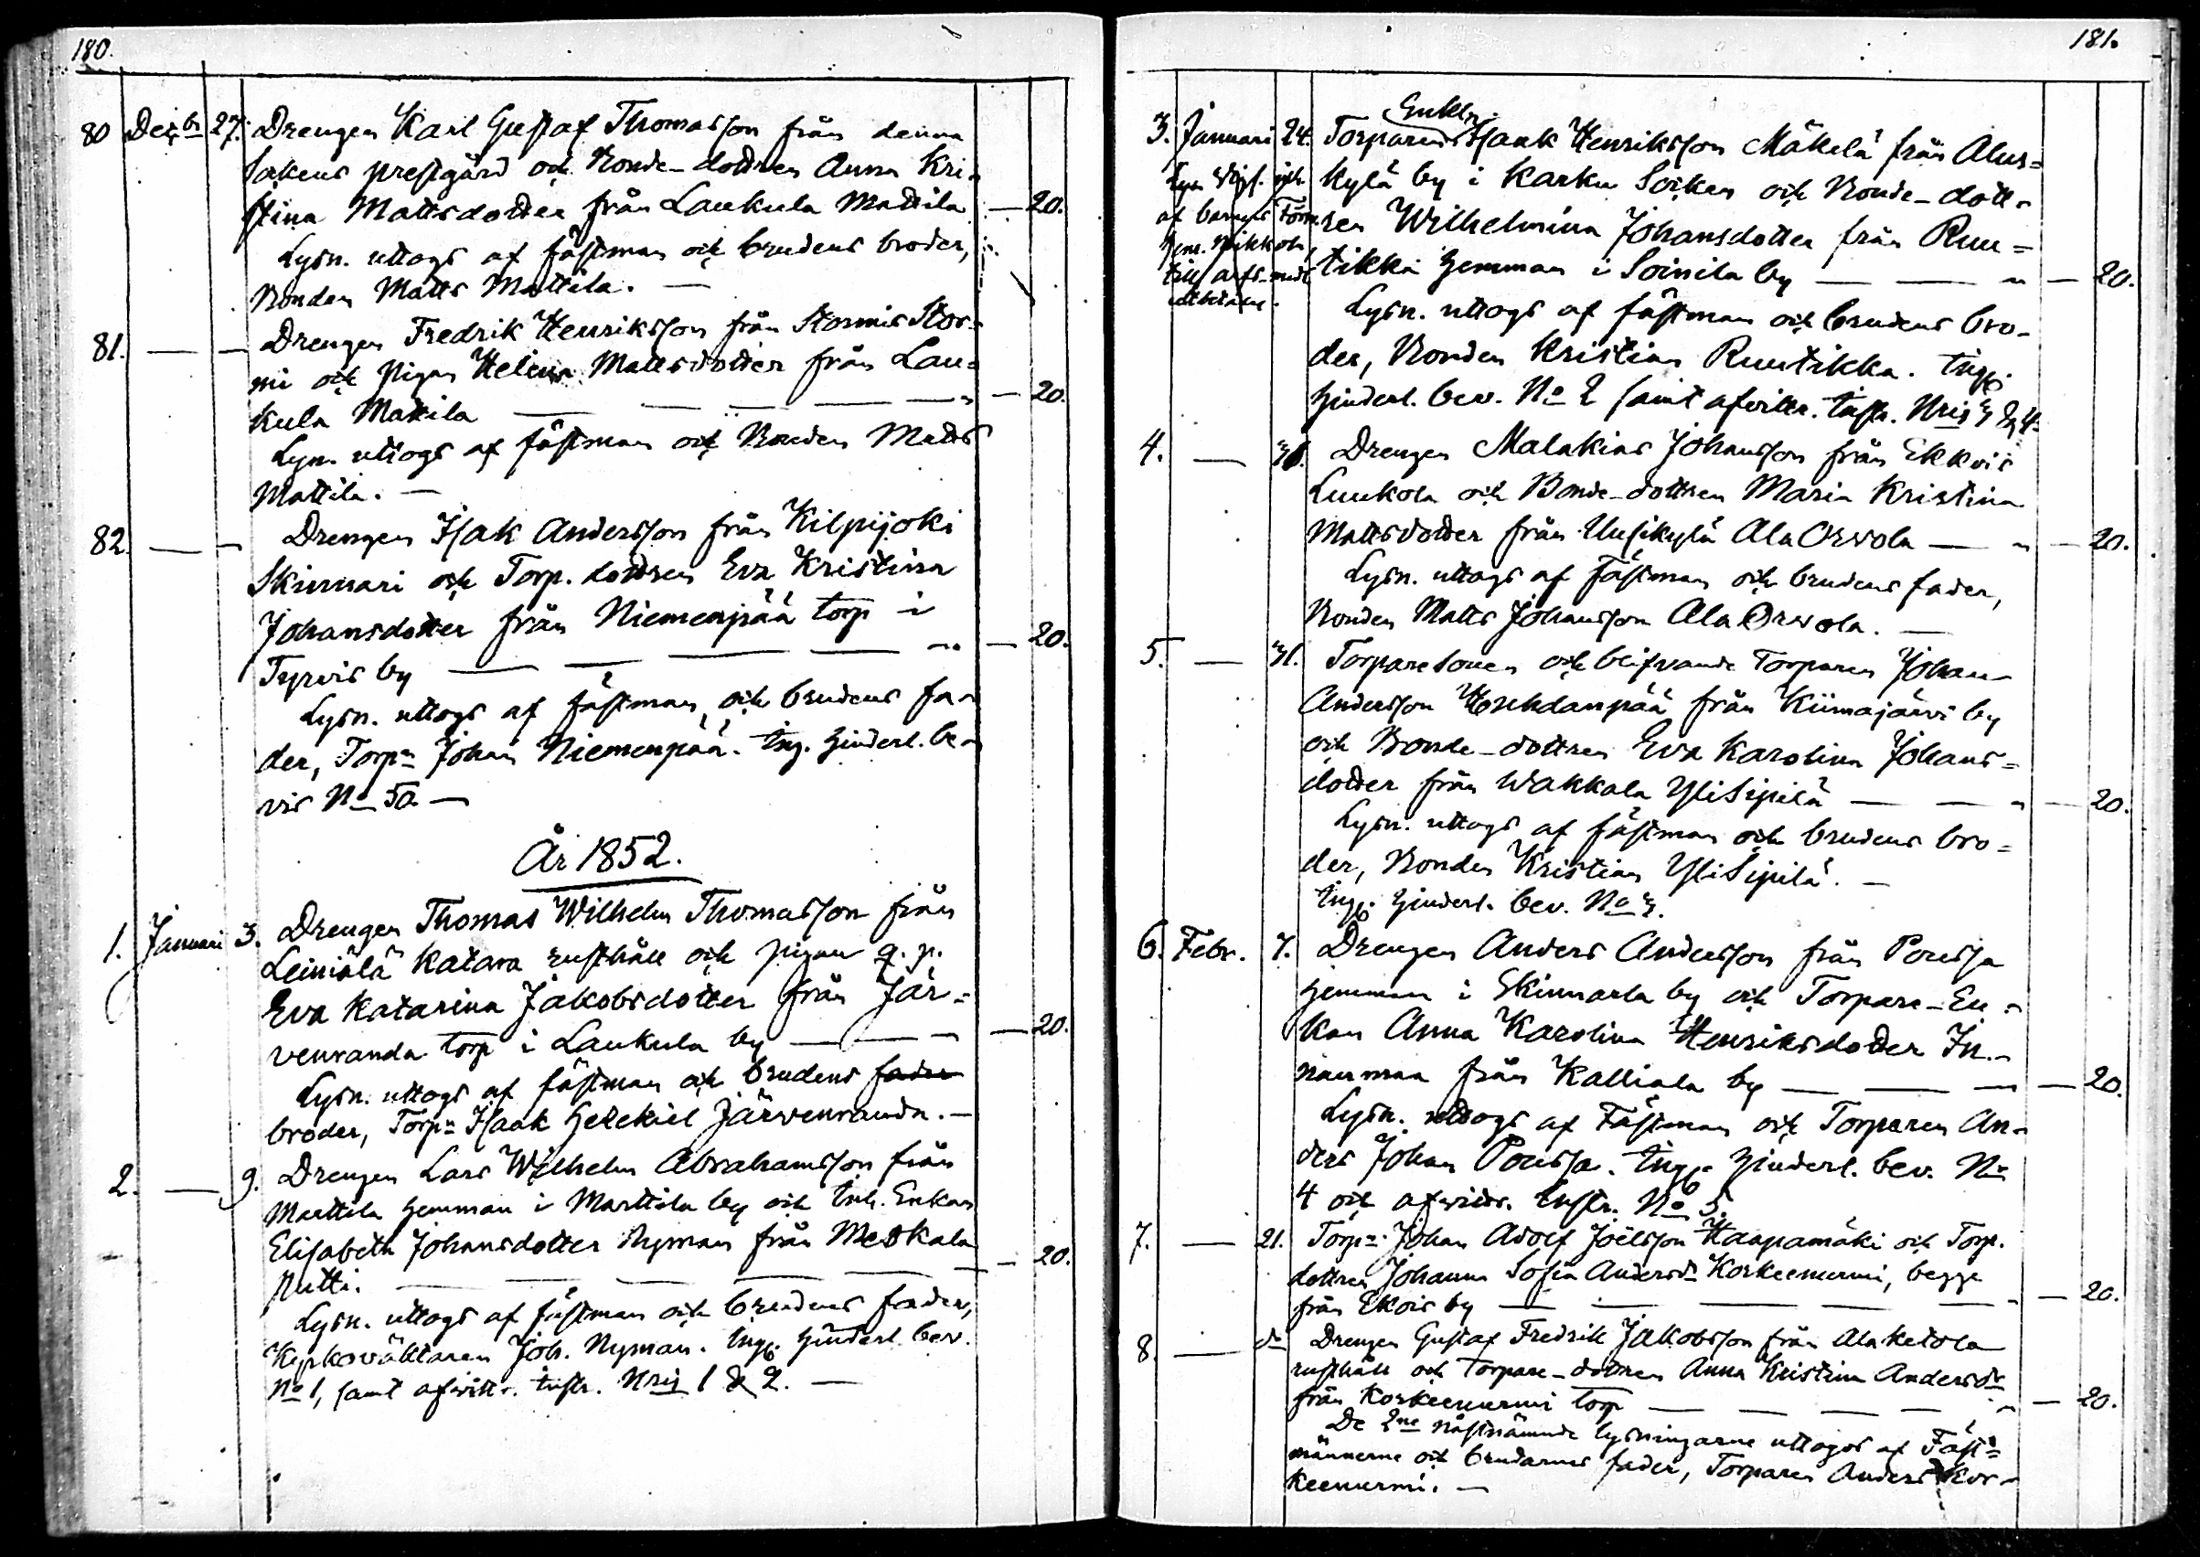 180.
80 Dec:br 27. Drengen Karl Gustaf Thomasson från denna
Sokens prestgård och Bonde-dottren Anna Kri-
stina Mattsdotter från Laukula Mattila — 20.
Lysn. uttogs af fästman och brudens broder,
Bonden Matts Mattila. —
81. — — Drengen Fredrik Henriksson från Stormis Stor-
mi och Pigan Helena Mattsdotter från Lau-
kula Mattila — — — — — 20.
Lysn. uttogs af fästman och Bonden Matts
Mattila. —
82. — — Drengen Isak Andersson från Kilpijoki
Skinnari och Torp. dottren Eva Kristina
Johansdotter från Niemenpää torp i
Tyrvis by — — — — — 20.
Lysn. uttogs af fästman och brudens fa-
der, Torp:n Johan Niemenpää. Ing. hinderl. be-
vis No 50. —
År 1852.
1. Januari 3. Drengen Thomas Wilhelm Thomasson från
Leiniälä Katara rusthåll och pigan q. p.
Eva Katarina Jakobsdotter från Jär-
venranda torp i Laukula by — — — 20.
Lysn. uttogs af fästman och brudens fader
broder, Torp:n Isaak Hesekiel Järvenranda. —
2. — 9. Drengen Lars Wilhelm Abrahamsson från
Marttila hemman i Marttila by och Inh. Enkan
Elisabeth Johansdotter Nyman från Meskala
Putti. — — — — — 20.
Lysn. uttogs af fästman och brudens fader,
Kyrkoväktaren Joh. Nyman. Ingg. hinderl. bev.
No 1, samt afvittr. instr. Nris 1 & 2. —
181.
3. Januari 24. Torparen Enkln. Isaak Henriksson Mäkelä från Alus-
kylä by i Karku Socken och Bonde-dott-
ren Wilhelmina Johansdotter från Ruu-
tikka hemman i Soinila by — — — 20.
af barnens Förm.
Lysn. uttogs af fästman och brudens bro-
der, Bonden Kristian Ruutikka. Ingg.
hinderl. bev. No 2 samt afvittr. instr. Nris 3 & 4.
4. — 31. Drengen Malakias Johansson från Ekkois
Luukola och Bonde-dottren Maria Kristina
Mattsdotter från Uusikylä Ala Orvola — — 20.
Lysn. uttogs af fästman och brudens fader,
Bonden Matts Johansson Ala Orvola. —
5. — 31. Torparesonen och blifvande Torparen Johan
Andersson Huhdanpää från Kiimajärvi by
och Bonde-dottren Eva Karolina Johans-
dotter från Wakkala YliSipilä — — — 20.
Lysn. uttogs af fästman och brudens bro-
der, Bonden Kristian YliSipilä. —
Ingg. hinderl. bev. No 3.
6. Febr. 7. Drengen Anders Andersson från Poussa
hemman i Skinnarla by och Torpare-En-
kan Anna Karolina Henriksdotter In-
nanmaa från Kalliala by — — — 20.
Lysn. uttogs af Fästman och Torparen An-
ders Johan Poussa. Ingg. hinderl. bev. No
4 och afvittr. instr. No 5.
7. — 21. Torp:n Johan Adolf Joelsson Haapamäki och Torp.
dottren Johanna Sofia Andersdr Korkeenurmi, begge
från Ekois by — — — — — 20.
8. — do Drengen Gustaf Fredrik Jakobsson från Alaketola
rusthåll och Torpare-dottren Anna Kristina Andersdr
från Korkeenurmi torp — — — — 20.
De 2ne nästnämnde lysningarne uttogos af Fäst-
männerne och brudarnes fader, Torparen Anders Kor-
keenurmi. —